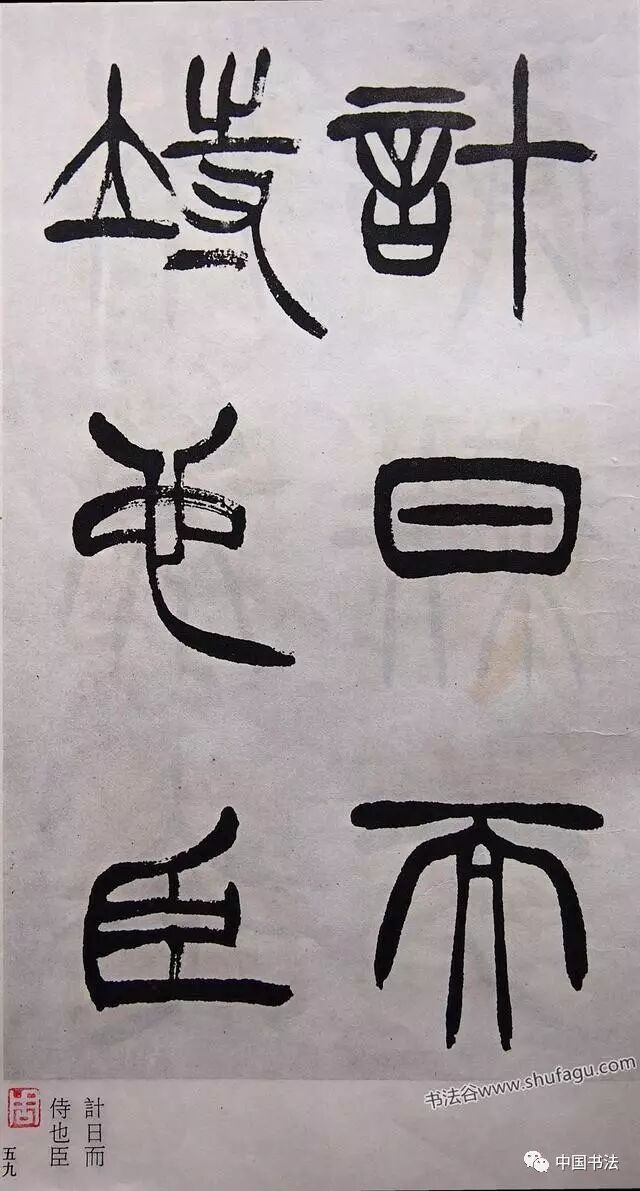 計日而
待也臣
計日而
侍也臣
五九
书法谷www.shufagu.com
中国书法